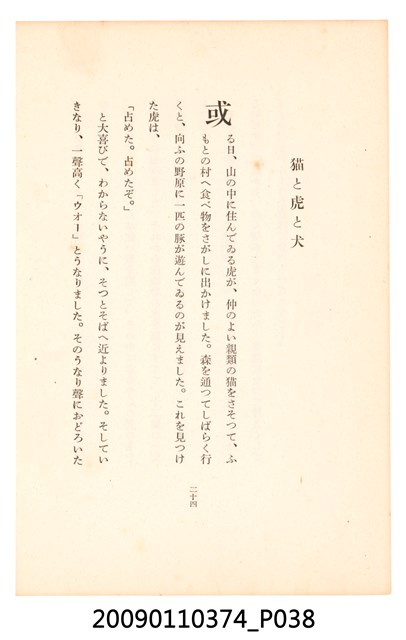 猫と虎と犬
或る日、山の中に住んでゐる虎が、仲のよい親類の猫をさそつて、ふ
もとの村へ食べ物をさがしに出かけました。森を通つてしばらく行
くと、向ふの野原に一匹の豚が遊んでゐるのが見えました。これを見つけ
た虎は、
「占めた。占めたぞ。」
と大喜びで、わからないやうに、そつとそばへ近よりました。そしてい
きなり、一聲高く「ウオー」とうなりました。そのうなり聲におどろいた
二十四
20090110374_P038